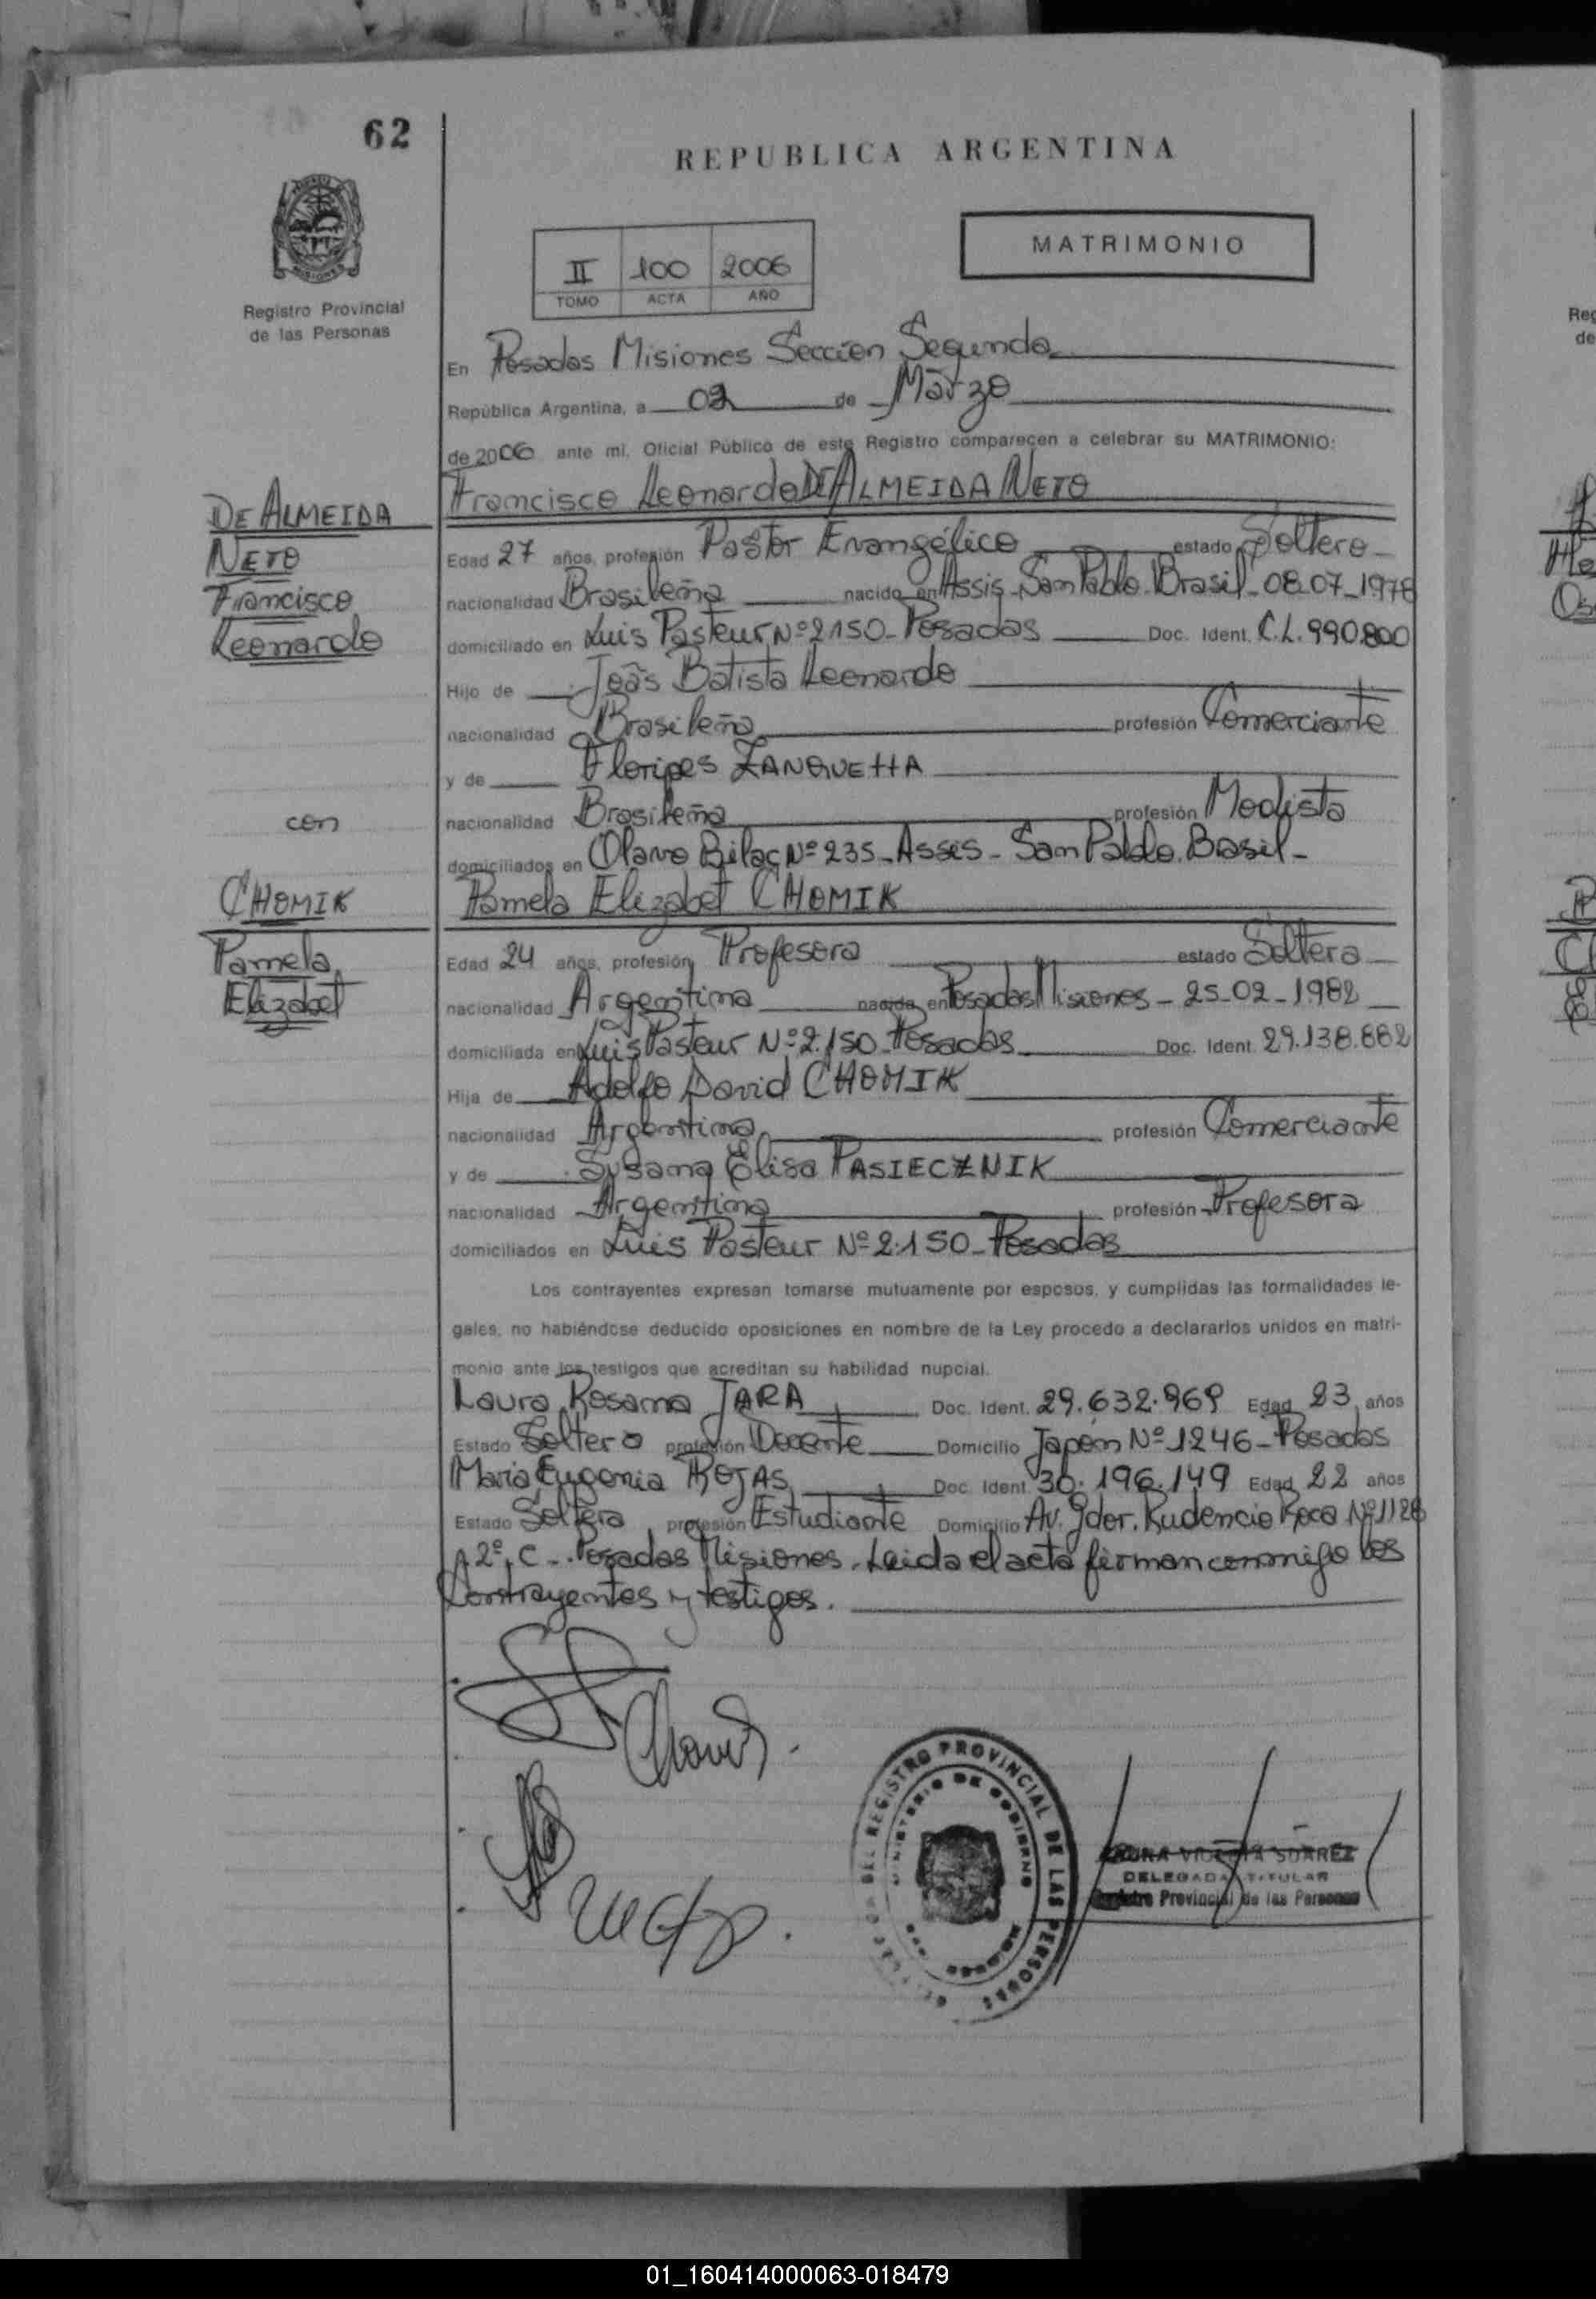 62
REPUBLICA ARGENTINA
MATRIMONIO
II 100 2006
TOMO ACTA AÑO
Registro Provincial
de las Personas
En Posadas Misiones Sección Segunda
República Argentina, a 02 de Marzo
de 2006 ante mí, Oficial Público de este Registro comparecen a celebrar su MATRIMONIO:
DE ALMEIDA
NETO
Francisco
Leonardo
con
CHOMIK
Pamela
Elizabet
Francisco Leonardo DE ALMEIDA NETO
Edad 27 años, profesión Pastor Evangélico estado Soltero
nacionalidad Brasileña nacido en Assis San Pablo Brasil - 08.07-1978
domiciliado en Luis Pasteur Nº 2150 - Posadas Doc. Ident. C.L. 990.800
Hijo de Joâs Batista Leonardo
nacionalidad Brasileña profesión Comerciante
y de Floripes ZANQUETTA
nacionalidad Brasileña profesión Modista
domiciliados en Olavo Bilac Nº 235 - Asses - San Pablo. Brasil -
Pamela Elizabet CHOMIK
Edad 24 años, profesión Profesora estado Soltera
nacionalidad Argentina nacida en Posadas Misiones - 25-02-1982
domiciliada en Luis Pasteur Nº 2.150 - Posadas Doc. Ident. 29.138.882
Hija de Adolfo David CHOMIK
nacionalidad Argentina profesión Comerciante
y de Susana Elisa PASIECZNIK
nacionalidad Argentina profesión Profesora
domiciliados en Luis Pasteur Nº 2.150 - Posadas
Los contrayentes expresan tomarse mutuamente por esposos, y cumplidas las formalidades le-
gales, no habiéndose deducido oposiciones en nombre de la Ley procedo a declararlos unidos en matri-
monio ante los testigos que acreditan su habilidad nupcial.
Laura Rosana JARA Doc. Ident. 29.632.969 Edad 23 años
Estado Soltero profesión Docente Domicilio Japón Nº 1246 - Posadas
Maria Eugenia ROJAS Doc. Ident. 30.196.149 Edad 22 años
Estado Soltera profesión Estudiante Domicilio Av. Gdor. Rudencio Roca Nº 1128
A 2º. C -. Posadas Misiones. Leida el acta firman conmigo los
Contrayentes y testigos.
REGISTRO PROVINCIAL DE LAS PERSONAS
MINISTERIO DE GOBIERNO
SUAREZ
DELEGADA TITULAR
Registro Provincial de las Personas
01_160414000063-018479